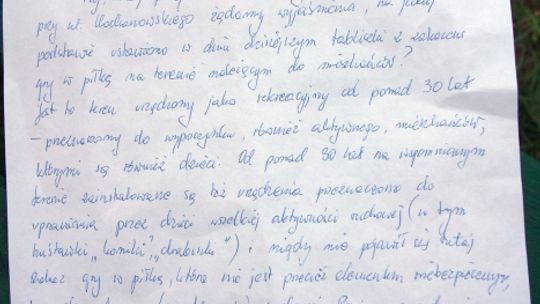 przy ul. Kochanowskiego żądamy wyjaśnienia, na jakiej
podstawie ustawiono w dniu dzisiejszym tabliczki z zakazem
gry w piłkę na terenie należącym do mieszkańców?
Jest to teren urządzony jako rekreacyjny od ponad 30 lat
– przeznaczony do wypoczynku, również aktywnego, mieszkańców,
którymi są również dzieci. Od ponad 30 lat na wspomnianym
terenie zainstalowane są też urządzenia przeznaczone do
uprawiania przez dzieci wszelkiej aktywności ruchowej (w tym
huśtawki, "konik", "drabinki") i nigdy nie pojawił się tutaj
zakaz gry w piłkę, która nie jest przecież elementem niebezpiecznym,